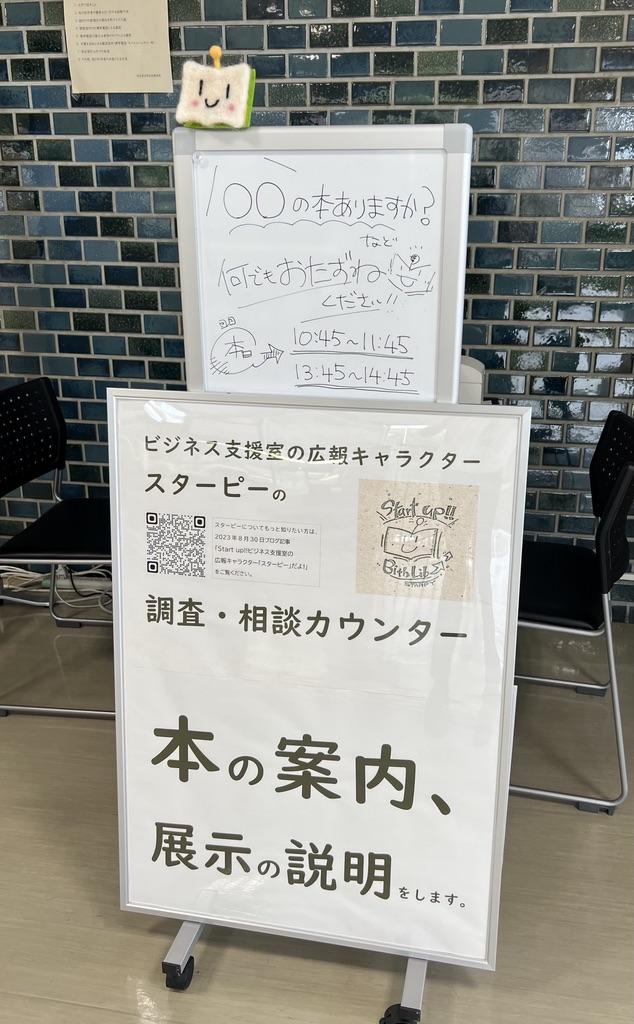 〇〇の本ありますか?
など
何でもおたずね
ください!!
本
10:45～11:45
13:45～14:45
ビジネス支援室の広報キャラクター
スターピーの
スターピーについてもっと知りたい方は、
2023年8月30日ブログ記事
「Start up!!ビジネス支援室の
広報キャラクター「スターピー」だよ!」
をご覧ください。
Start up!!
調査・相談カウンター
本の案内、
展示の説明をします。